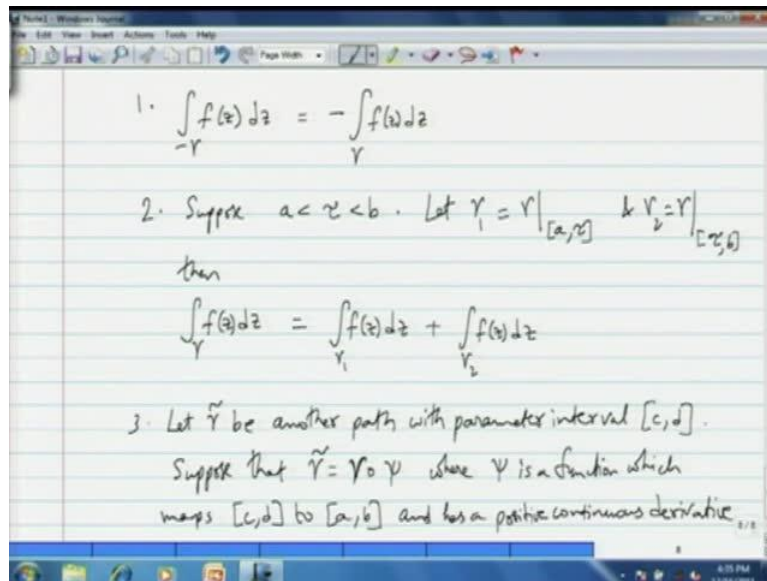 Note1 - Windows Journal
File Edit View Insert Actions Tools Help
Page Width
1. ∫_{-γ} f(z) dz = - ∫_γ f(z) dz
2. Suppose a < τ < b . Let γ_1 = γ|_{[a,τ]} & γ_2 = γ|_{[τ,b]}
then
∫_γ f(z) dz = ∫_{γ_1} f(z) dz + ∫_{γ_2} f(z) dz
3. Let γ̃ be another path with parameter interval [c,d].
Suppose that γ̃ = γ∘ψ where ψ is a function which
maps [c,d] to [a,b] and has a positive continuous derivative
8/8
8
4:35 PM